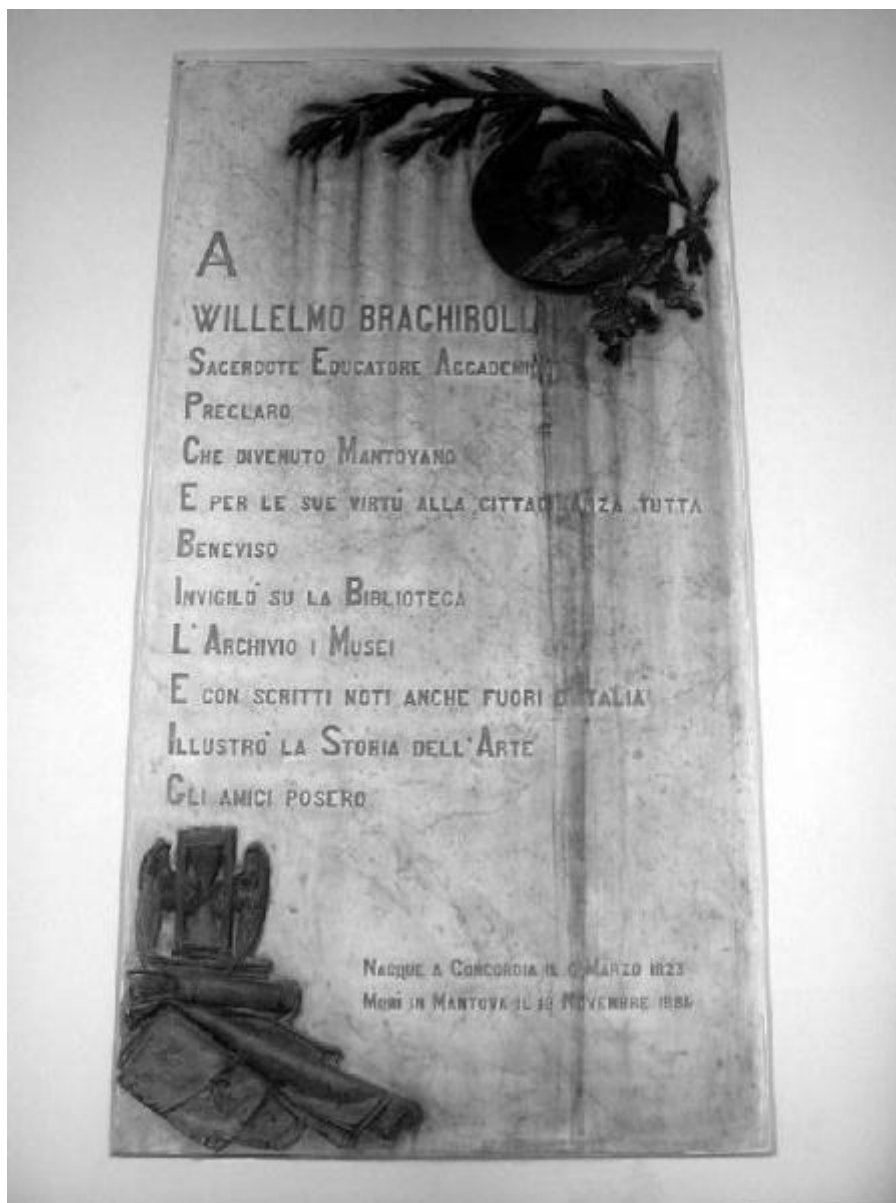 A
WILLELMO BRAGHIROLLI
SACERDOTE EDUCATORE ACCADEMICO
PRECLARO
CHE DIVENUTO MANTOVANO
E PER LE SUE VIRTÙ ALLA CITTADINANZA TUTTA
BENEVISO
INVIGILÒ SU LA BIBLIOTECA
L'ARCHIVIO I MUSEI
E CON SCRITTI NOTI ANCHE FUORI D'ITALIA
ILLUSTRÒ LA STORIA DELL'ARTE
GLI AMICI POSERO
NACQUE A CONCORDIA IL MARZO 1823
MORÌ IN MANTOVA IL NOVEMBRE